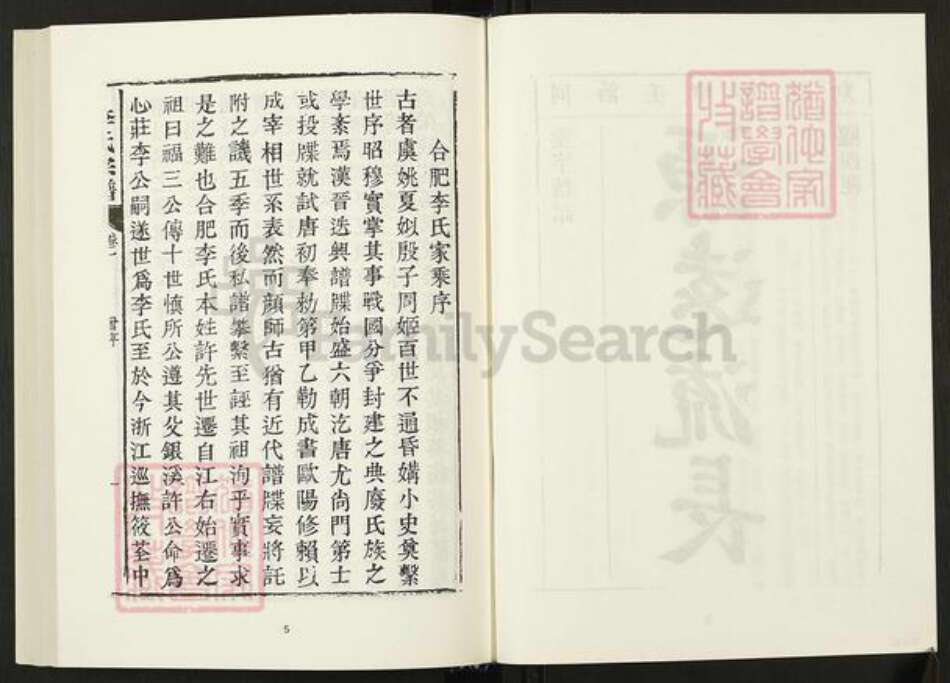 合肥李氏家乘序
古者虞姚夏姒殷子周姬百世不通昏媾小史奠繫
世序昭穆實掌其事戰國分爭封建之典廢氏族之
學紊焉漢晉迭興譜牒始盛六朝汔唐尤尙門第士
或投牒就試唐初奉勑第甲乙勒成書歐陽修賴以
成宰相世系表然而顏師古猶有近代譜牒妄將託
附之譏五季而後私譜摹繫至誣其祖洵乎實事求
是之難也合肥李氏本姓許先世遷自江右始遷之
祖曰福三公傳十世愼所公遵其父銀溪許公命爲
心莊李公嗣遂世爲李氏至於今浙江巡撫筱荃中
李氏宗譜
卷一
5
猶他家
譜學會
收藏
FamilySearch
源遠流長